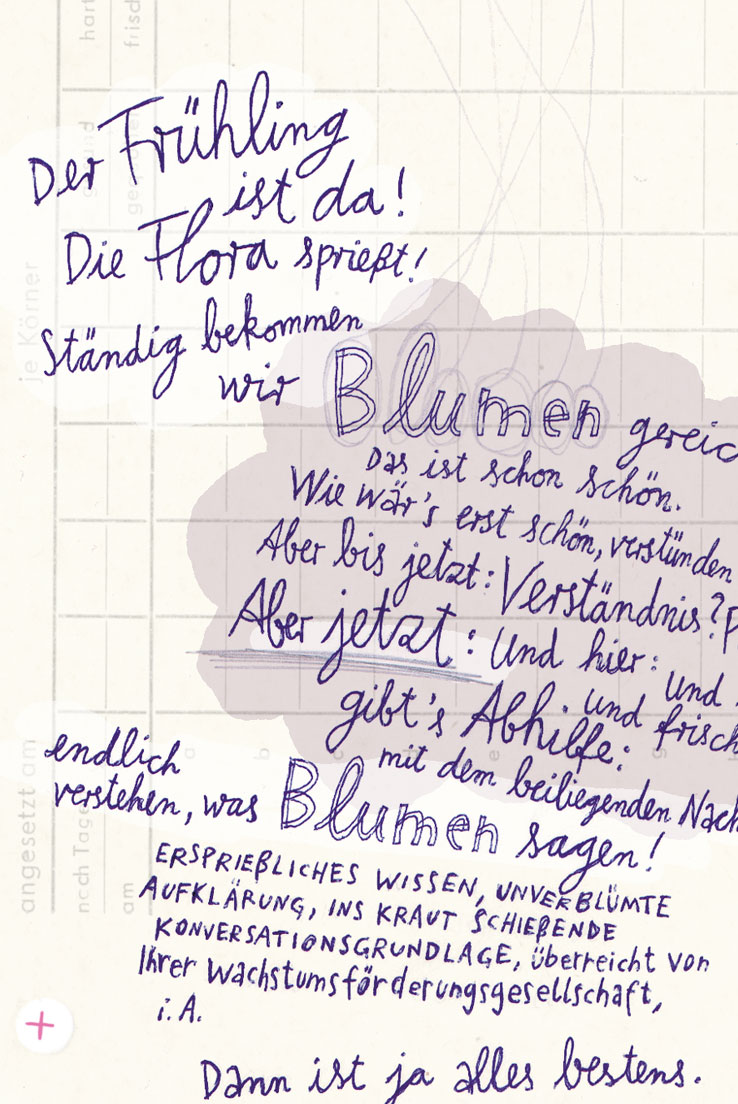 hart
frisch
Der Frühling
ist da!
Die Flora sprießt!
je Körner
Ständig bekommen
wir Blumen gereic
Das ist schon schön.
Wie wär's erst schön, verstünden
Aber bis jetzt: Verständnis? P
Aber jetzt: Und hier: Und
gibt's Abhilfe: und frisch
endlich
mit dem beiliegenden Nach
verstehen, was Blumen sagen!
angesetzt am
noch Tage
am
a b c e g h
ERSPRIEßLICHES WISSEN, UNVERBLÜMTE
AUFKLÄRUNG, INS KRAUT SCHIEßENDE
KONVERSATIONSGRUNDLAGE, überreicht von
Ihrer Wachstumsförderungsgesellschaft,
i.A.
Dann ist ja alles bestens.